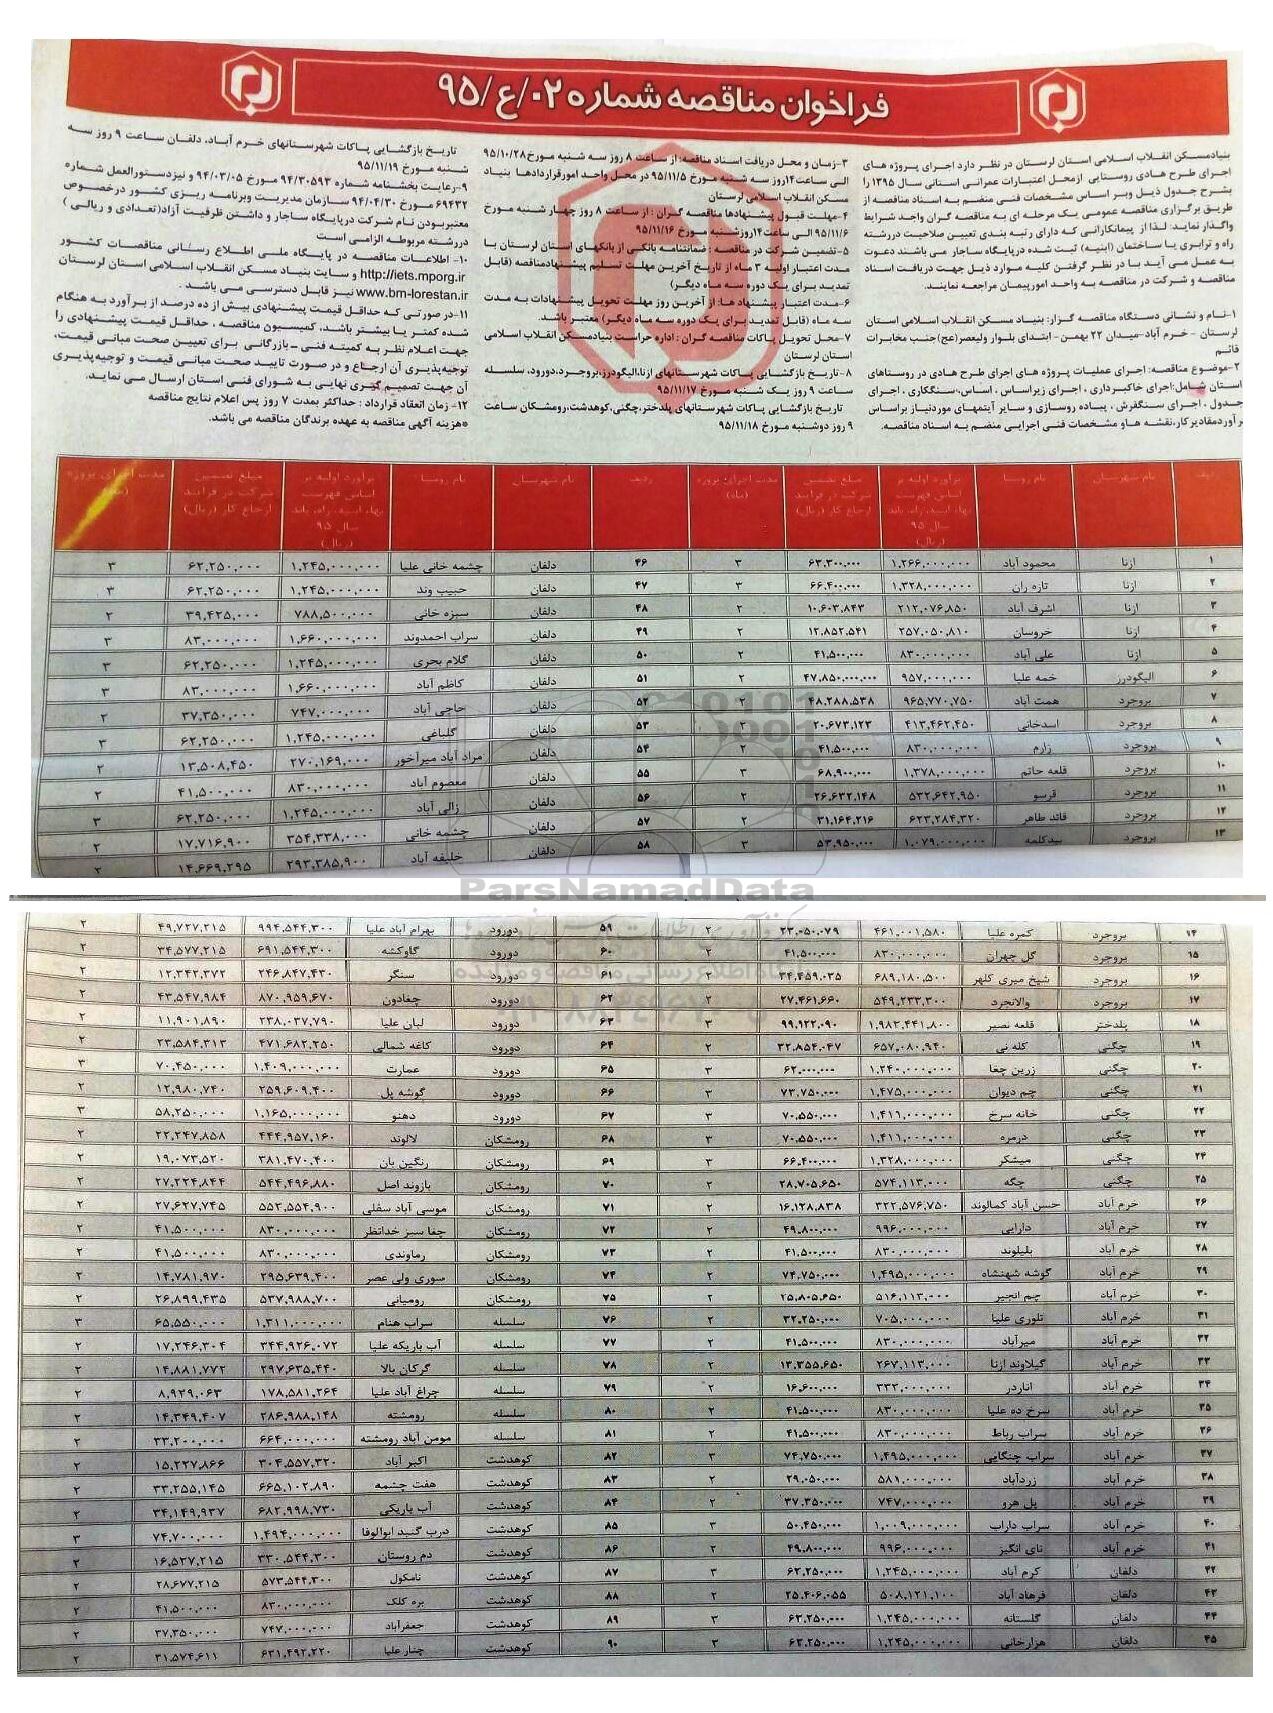 فراخوان مناقصه شماره ۰۲/ع/۹۵
بنیادمسکن انقلاب اسلامی استان لرستان در نظر دارد اجرای پروژه های
اجرای طرح هادی روستایی ازمحل اعتبارات عمرانی استانی سال ۱۳۹۵ را
بشرح جدول ذیل وبر اساس مشخصات فنی منضم به اسناد مناقصه از
طریق برگزاری مناقصه عمومی یک مرحله ای به مناقصه گران واجد شرایط
واگذار نماید: لذا از پیمانکارانی که دارای رتبه بندی تعیین صلاحیت دررشته
راه و ترابری یا ساختمان (ابنیه) ثبت شده درپایگاه ساجار می باشند دعوت
به عمل می آید با در نظر گرفتن کلیه موارد ذیل جهت دریافت اسناد
مناقصه و شرکت در مناقصه به واحد امورپیمان مراجعه نمایند.
۱-نام و نشانی دستگاه مناقصه گزار: بنیاد مسکن انقلاب اسلامی استان
لرستان - خرم آباد-میدان ۲۲ بهمن- ابتدای بلوار ولیعصر(عج)جنب مخابرات
قائم
۲-موضوع مناقصه: اجرای عملیات پروژه های اجرای طرح هادی در روستاهای
استان شامل:اجرای خاکبرداری ، اجرای زیراساس ، اساس،سنگکاری ، اجرای
جدول ، اجرای سنگفرش ، پیاده روسازی و سایر آیتمهای موردنیاز براساس
برآوردمقادیرکار،نقشه هاو مشخصات فنی اجرایی منضم به اسناد مناقصه.
۳-زمان و محل دریافت اسناد مناقصه: از ساعت ۸ روز سه شنبه مورخ ۹۵/۱۰/۲۸
الی ساعت۱۴روز سه شنبه مورخ ۹۵/۱۱/۵ در محل واحد امورقراردادها بنیاد
مسکن انقلاب اسلامی لرستان
۴-مهلت قبول پیشنهادها مناقصه گران : از ساعت ۸ روز چهار شنبه مورخ
۹۵/۱۱/۶ الی ساعت۱۴روزشنبه مورخ ۹۵/۱۱/۱۶
۵-تضمین شرکت در مناقصه : ضمانتنامه بانکی از بانکهای استان لرستان با
مدت اعتبار اولیه ۳ ماه از تاریخ آخرین مهلت تسلیم پیشنهادمناقصه (قابل
تمدید برای یک دوره سه ماه دیگر)
۶-مدت اعتبار پیشنهاد ها: از آخرین روز مهلت تحویل پیشنهادات به مدت
سه ماه (قابل تمدید برای یک دوره سه ماه دیگر) معتبر باشد.
۷-محل تحویل پاکات مناقصه گران : اداره حراست بنیادمسکن انقلاب اسلامی
استان لرستان
۸-تاریخ بازگشایی پاکات شهرستانهای ازنا،الیگودرز،بروجرد،دورود، سلسله
ساعت ۹ روز یک شنبه مورخ ۹۵/۱۱/۱۷
تاریخ بازگشایی پاکات شهرستانهای پلدختر،چگنی،کوهدشت،رومشکان ساعت
۹ روز دوشنبه مورخ ۹۵/۱۱/۱۸
تاریخ بازگشایی پاکات شهرستانهای خرم آباد، دلفان ساعت ۹ روز سه
شنبه مورخ ۹۵/۱۱/۱۹
۹-رعایت بخشنامه شماره ۹۴/۳۰۵۹۳ مورخ ۹۴/۰۳/۰۵ و نیزدستورالعمل شماره
۶۹۴۳۲ مورخ ۹۴/۰۴/۳۰ سازمان مدیریت وبرنامه ریزی کشور درخصوص
معتبربودن نام شرکت درپایگاه ساجار و داشتن ظرفیت آزاد(تعدادی و ریالی )
دررشته مربوطه الزامی است
۱۰- اطلاعات مناقصه در پایگاه ملی اطلاع رسانی مناقصات کشور
http://iets.mporg.ir و سایت بنیاد مسکن انقلاب اسلامی استان لرستان
www.bm-lorestan.ir نیز قابل دسترسی می باشد .
۱۱-در صورتی که حداقل قیمت پیشنهادی بیش از ده درصد از برآورد به هنگام
شده کمتر یا بیشتر باشد، کمیسیون مناقصه ، حداقل قیمت پیشنهادی را
جهت اعلام نظر به کمیته فنی –بازرگانی برای تعیین صحت مبانی قیمت،
توجیه‌پذیری آن ارجاع و در صورت تایید صحت مبانی قیمت و توجیه‌پذیری
آن جهت تصمیم گیری نهایی به شورای فنی استان ارسال می نماید.
۱۲- زمان انعقاد قرارداد : حداکثر بمدت ۷ روز پس اعلام نتایج مناقصه
*هزینه آگهی مناقصه به عهده برندگان مناقصه می باشد.
ردیف نام شهرستان نام روستا برآورد اولیه بر اساس فهرست بهاء ابنیه، راه، باند سال ۹۵ (ریال) مبلغ تضمین شرکت در فرایند ارجاع کار (ریال) مدت اجرای پروژه (ماه) ردیف نام شهرستان نام روستا برآورد اولیه بر اساس فهرست بهاء ابنیه، راه، باند سال ۹۵ (ریال) مبلغ تضمین شرکت در فرایند ارجاع کار (ریال) مدت اجرای پروژه
۱ ازنا محمود آباد ۱،۲۶۶،۰۰۰،۰۰۰ ۶۳،۳۰۰،۰۰۰ ۳ ۴۶ دلفان چشمه خانی علیا ۱،۲۴۵،۰۰۰،۰۰۰ ۶۲،۲۵۰،۰۰۰ ۳
۲ ازنا تازه ران ۱،۳۲۸،۰۰۰،۰۰۰ ۶۶،۴۰۰،۰۰۰ ۳ ۴۷ دلفان حبیب وند ۱،۲۴۵،۰۰۰،۰۰۰ ۶۲،۲۵۰،۰۰۰ ۳
۳ ازنا اشرف آباد ۲۱۲،۰۷۶،۸۵۰ ۱۰،۶۰۳،۸۴۳ ۲ ۴۸ دلفان سبزه خانی ۷۸۸،۵۰۰،۰۰۰ ۳۹،۴۲۵،۰۰۰ ۲
۴ ازنا خروسان ۲۵۷،۰۵۰،۸۱۰ ۱۲،۸۵۲،۵۴۱ ۲ ۴۹ دلفان سراب احمدوند ۱،۶۶۰،۰۰۰،۰۰۰ ۸۳،۰۰۰،۰۰۰ ۳
۵ ازنا علی آباد ۸۳۰،۰۰۰،۰۰۰ ۴۱،۵۰۰،۰۰۰ ۲ ۵۰ دلفان گلام بحری ۱،۲۴۵،۰۰۰،۰۰۰ ۶۲،۲۵۰،۰۰۰ ۳
۶ الیگودرز خمه علیا ۹۵۷،۰۰۰،۰۰۰ ۴۷،۸۵۰،۰۰۰،۰۰۰ ۲ ۵۱ دلفان کاظم آباد ۱،۶۶۰،۰۰۰،۰۰۰ ۸۳،۰۰۰،۰۰۰ ۳
۷ بروجرد همت آباد ۹۶۵،۷۷۰،۷۵۰ ۴۸،۲۸۸،۵۳۸ ۲ ۵۲ دلفان حاجی آباد ۷۴۷،۰۰۰،۰۰۰ ۳۷،۳۵۰،۰۰۰ ۲
۸ بروجرد اسدخانی ۴۱۳،۴۶۲،۴۵۰ ۲۰،۶۷۳،۱۲۳ ۲ ۵۳ دلفان گلباغی ۱،۲۴۵،۰۰۰،۰۰۰ ۶۲،۲۵۰،۰۰۰ ۳
۹ بروجرد زارم ۸۳۰،۰۰۰،۰۰۰ ۴۱،۵۰۰،۰۰۰ ۲ ۵۴ دلفان مراد آباد میرآخور ۲۷۰،۱۶۹،۰۰۰ ۱۳،۵۰۸،۴۵۰ ۲
۱۰ بروجرد قلعه حاتم ۱،۳۷۸،۰۰۰،۰۰۰ ۶۸،۹۰۰،۰۰۰ ۳ ۵۵ دلفان معصوم آباد ۸۳۰،۰۰۰،۰۰۰ ۴۱،۵۰۰،۰۰۰ ۲
۱۱ بروجرد قرسو ۵۳۲،۶۴۲،۹۵۰ ۲۶،۶۳۲،۱۴۸ ۲ ۵۶ دلفان زالی آباد ۱،۲۴۵،۰۰۰،۰۰۰ ۶۲،۲۵۰،۰۰۰ ۳
۱۲ بروجرد قائد طاهر ۶۲۳،۲۸۴،۳۲۰ ۳۱،۱۶۴،۲۱۶ ۲ ۵۷ دلفان چشمه خانی ۳۵۴،۳۳۸،۰۰۰ ۱۷،۷۱۶،۹۰۰ ۲
۱۳ بروجرد بیدکلمه ۱،۰۷۹،۰۰۰،۰۰۰ ۵۳،۹۵۰،۰۰۰ ۳ ۵۸ دلفان خلیفه آباد ۲۹۳،۳۸۵،۹۰۰ ۱۴،۶۶۹،۲۹۵ ۲
ParsNamadData
۱۴ بروجرد کمره علیا ۴۶۱،۰۰۱،۵۸۰ ۲۳،۰۵۰،۰۷۹ ۲ ۵۹ دورود بهرام آباد علیا ۹۹۴،۵۴۴،۳۰۰ ۴۹،۷۲۷،۲۱۵ ۲
۱۵ بروجرد گل چهران ۸۳۰،۰۰۰،۰۰۰ ۴۱،۵۰۰،۰۰۰ ۲ ۶۰ دورود گاوکشه ۶۹۱،۵۴۴،۳۰۰ ۳۴،۵۷۷،۲۱۵ ۲
۱۶ بروجرد شیخ میری کلهر ۶۸۹،۱۸۰،۵۰۰ ۳۴،۴۵۹،۰۳۵ ۲ ۶۱ دورود سنگر ۲۴۶،۸۴۷،۴۳۰ ۱۲،۳۴۲،۳۷۲ ۲
۱۷ بروجرد والانجرد ۵۴۹،۲۳۳،۳۰۰ ۲۷،۴۶۱،۶۶۰ ۲ ۶۲ دورود چغادون ۸۷۰،۹۵۹،۶۷۰ ۴۳،۵۴۷،۹۸۴ ۲
۱۸ پلدختر قلعه نصیر ۱،۹۸۲،۴۴۱،۸۰۰ ۹۹،۹۲۲،۰۹۰ ۳ ۶۳ دورود لبان علیا ۲۳۸،۰۳۷،۷۹۰ ۱۱،۹۰۱،۸۹۰ ۲
۱۹ چگنی کله نی ۶۵۷،۰۸۰،۹۴۰ ۳۲،۸۵۴،۰۴۷ ۲ ۶۴ دورود کاغه شمالی ۴۷۱،۶۸۲،۲۵۰ ۲۳،۵۸۴،۳۱۳ ۲
۲۰ چگنی زرین چغا ۱،۲۴۰،۰۰۰،۰۰۰ ۶۲،۰۰۰،۰۰۰ ۳ ۶۵ دورود عمارت ۱،۴۰۹،۰۰۰،۰۰۰ ۷۰،۴۵۰،۰۰۰ ۳
۲۱ چگنی چم دیوان ۱،۴۷۵،۰۰۰،۰۰۰ ۷۳،۷۵۰،۰۰۰ ۳ ۶۶ دورود گوشه پل ۲۵۹،۶۰۹،۴۰۰ ۱۲،۹۸۰،۷۴۰ ۲
۲۲ چگنی خانه سرخ ۱،۴۱۱،۰۰۰،۰۰۰ ۷۰،۵۵۰،۰۰۰ ۳ ۶۷ دورود دهنو ۱،۱۶۵،۰۰۰،۰۰۰ ۵۸،۲۵۰،۰۰۰ ۳
۲۳ چگنی درمره ۱،۴۱۱،۰۰۰،۰۰۰ ۷۰،۵۵۰،۰۰۰ ۳ ۶۸ رومشکان لالوند ۴۴۴،۹۵۷،۱۶۰ ۲۲،۲۴۷،۸۵۸ ۲
۲۴ چگنی میشکر ۱،۳۲۸،۰۰۰،۰۰۰ ۶۶،۴۰۰،۰۰۰ ۳ ۶۹ رومشکان رنگین بان ۳۸۱،۴۷۰،۴۰۰ ۱۹،۰۷۳،۵۲۰ ۲
۲۵ چگنی چگه ۵۷۴،۱۱۳،۰۰۰ ۲۸،۷۰۵،۶۵۰ ۲ ۷۰ رومشکان بازوند اصل ۵۴۴،۴۹۶،۸۸۰ ۲۷،۲۲۴،۸۴۴ ۲
۲۶ خرم آباد حسن آباد کمالوند ۳۲۲،۵۷۶،۷۵۰ ۱۶،۱۲۸،۸۳۸ ۲ ۷۱ رومشکان موسی آباد سفلی ۵۵۲،۵۵۴،۹۰۰ ۲۷،۶۲۷،۷۴۵ ۲
۲۷ خرم آباد دارایی ۹۹۶،۰۰۰،۰۰۰ ۴۹،۸۰۰،۰۰۰ ۲ ۷۲ رومشکان چغا سبز خدانظر ۸۳۰،۰۰۰،۰۰۰ ۴۱،۵۰۰،۰۰۰ ۲
۲۸ خرم آباد بلیلوند ۸۳۰،۰۰۰،۰۰۰ ۴۱،۵۰۰،۰۰۰ ۲ ۷۳ رومشکان رماوندی ۸۳۰،۰۰۰،۰۰۰ ۴۱،۵۰۰،۰۰۰ ۲
۲۹ خرم آباد گوشه شهنشاه ۱،۴۹۵،۰۰۰،۰۰۰ ۷۴،۷۵۰،۰۰۰ ۲ ۷۴ رومشکان سوری ولی عصر ۲۹۵،۶۳۹،۴۰۰ ۱۴،۷۸۱،۹۷۰ ۲
۳۰ خرم آباد چم انجیر ۵۱۶،۱۱۳،۰۰۰ ۲۵،۸۰۵،۶۵۰ ۲ ۷۵ رومشکان رومیانی ۵۳۷،۹۸۸،۷۰۰ ۲۶،۸۹۹،۴۳۵ ۲
۳۱ خرم آباد تلوری علیا ۷۰۵،۰۰۰،۰۰۰ ۳۲،۲۵۰،۰۰۰ ۲ ۷۶ سلسله سراب هنام ۱،۳۱۱،۰۰۰،۰۰۰ ۶۵،۵۵۰،۰۰۰ ۳
۳۲ خرم آباد میرآباد ۸۳۰،۰۰۰،۰۰۰ ۴۱،۵۰۰،۰۰۰ ۲ ۷۷ سلسله آب باریکه علیا ۳۴۴،۹۲۶،۰۷۲ ۱۷،۲۴۶،۳۰۴ ۲
۳۳ خرم آباد گیلاوند ازنا ۲۶۷،۱۱۳،۰۰۰ ۱۳،۳۵۵،۶۵۰ ۲ ۷۸ سلسله گرکان بالا ۲۹۷،۶۳۵،۴۴۰ ۱۴،۸۸۱،۷۷۲ ۲
۳۴ خرم آباد اناردر ۳۳۲،۰۰۰،۰۰۰ ۱۶،۶۰۰،۰۰۰ ۲ ۷۹ سلسله چراغ آباد علیا ۱۷۸،۵۸۱،۲۶۴ ۸،۹۲۹،۰۶۳ ۲
۳۵ خرم آباد سرخ ده علیا ۸۳۰،۰۰۰،۰۰۰ ۴۱،۵۰۰،۰۰۰ ۲ ۸۰ سلسله رومشته ۲۸۶،۹۸۸،۱۴۸ ۱۴،۳۴۹،۴۰۷ ۲
۳۶ خرم آباد سراب رباط ۸۳۰،۰۰۰،۰۰۰ ۴۱،۵۰۰،۰۰۰ ۲ ۸۱ سلسله مومن آباد رومشته ۶۶۴،۰۰۰،۰۰۰ ۳۳،۲۰۰،۰۰۰ ۲
۳۷ خرم آباد سراب چنگایی ۱،۴۹۵،۰۰۰،۰۰۰ ۷۴،۷۵۰،۰۰۰ ۳ ۸۲ کوهدشت اکبر آباد ۳۰۴،۵۵۷،۳۲۰ ۱۵،۲۲۷،۸۶۶ ۲
۳۸ خرم آباد زردآباد ۵۸۱،۰۰۰،۰۰۰ ۲۹،۰۵۰،۰۰۰ ۲ ۸۳ کوهدشت هفت چشمه ۶۶۵،۱۰۲،۸۹۰ ۳۳،۲۵۵،۱۴۵ ۲
۳۹ خرم آباد پل هرو ۷۴۷،۰۰۰،۰۰۰ ۳۷،۳۵۰،۰۰۰ ۲ ۸۴ کوهدشت آب باریکی ۶۸۲،۹۹۸،۷۳۰ ۳۴،۱۴۹،۹۳۷ ۲
۴۰ خرم آباد سراب داراب ۱،۰۰۹،۰۰۰،۰۰۰ ۵۰،۴۵۰،۰۰۰ ۳ ۸۵ کوهدشت درب گنبد ابوالوفا ۱،۴۹۴،۰۰۰،۰۰۰ ۷۴،۷۰۰،۰۰۰ ۳
۴۱ خرم آباد نای انگیز ۹۹۶،۰۰۰،۰۰۰ ۴۹،۸۰۰،۰۰۰ ۲ ۸۶ کوهدشت دم روستان ۳۳۰،۵۴۴،۳۰۰ ۱۶،۵۲۷،۲۱۵ ۲
۴۲ دلفان کرم آباد ۱،۲۴۵،۰۰۰،۰۰۰ ۶۲،۲۵۰،۰۰۰ ۳ ۸۷ کوهدشت نامکول ۵۷۳،۵۴۴،۳۰۰ ۲۸،۶۷۷،۲۱۵ ۲
۴۳ دلفان فرهاد آباد ۵۰۸،۱۲۱،۱۰۰ ۲۵،۴۰۶،۰۵۵ ۲ ۸۸ کوهدشت بره کلک ۸۳۰،۰۰۰،۰۰۰ ۴۱،۵۰۰،۰۰۰ ۲
۴۴ دلفان گلستانه ۱،۲۴۵،۰۰۰،۰۰۰ ۶۲،۲۵۰،۰۰۰ ۳ ۸۹ کوهدشت جعفرآباد ۷۴۷،۰۰۰،۰۰۰ ۳۷،۳۵۰،۰۰۰ ۲
۴۵ دلفان هزارخانی ۱،۲۴۵،۰۰۰،۰۰۰ ۶۲،۲۵۰،۰۰۰ ۳ ۹۰ کوهدشت چنار علیا ۶۳۱،۴۹۲،۲۲۰ ۳۱،۵۷۴،۶۱۱ ۲